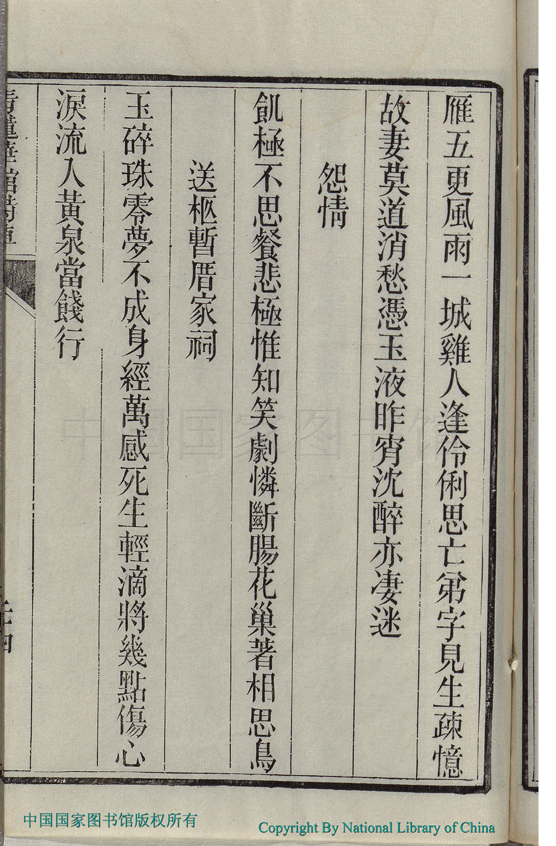 雁五更風雨一城雞人逢伶俐思亡弟字見生疎憶
故妻莫道消愁憑玉液昨宵沈醉亦凄迷
怨情
飢極不思餐悲極惟知笑劇憐斷腸花巢著相思鳥
送柩暫厝家祠
玉碎珠零夢不成身經萬感死生輕滴將幾點傷心
淚流入黃泉當餞行
中国国家图书馆
中国国家图书馆版权所有
Copyright By National Library of China